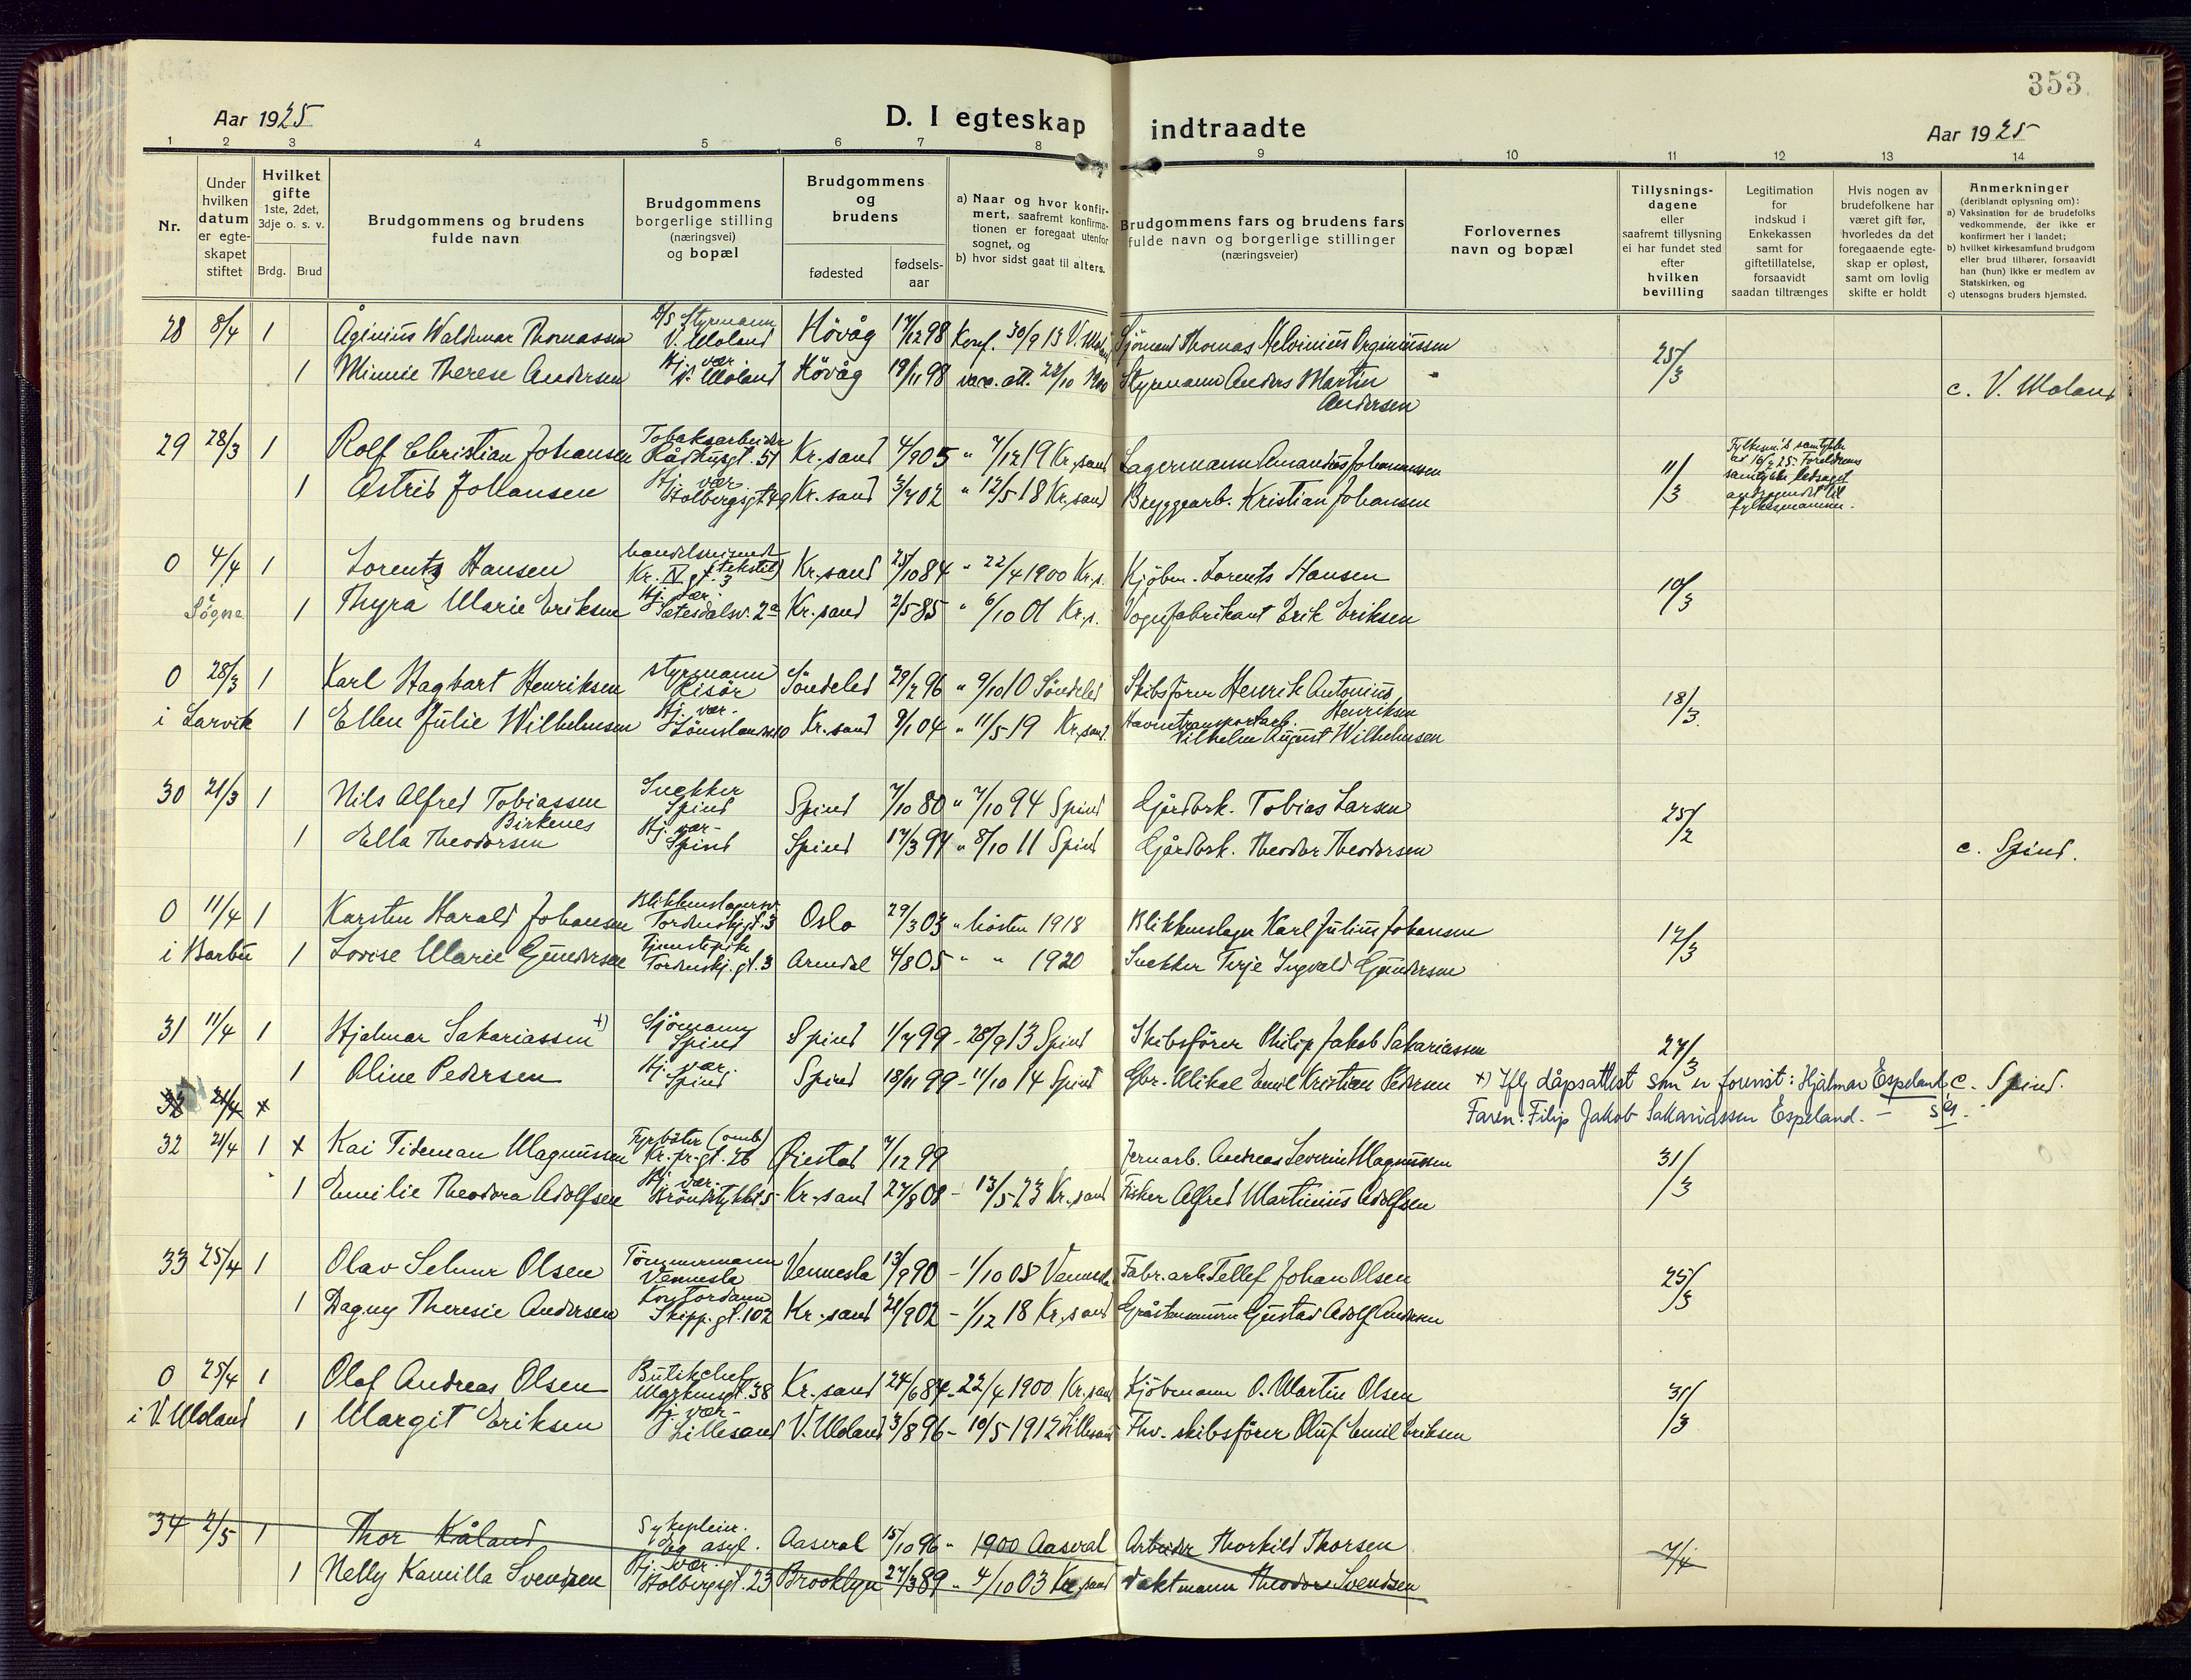 353
Aar 1925
D. I egteskap indtraadte
Aar 1925
1 2 3 4 5 6 7 8 9 10 11 12 13 14
Nr.
Under hvilken datum er egteskapet stiftet
Hvilket gifte
1ste, 2det, 3dje o. s. v.
Brdg. Brud
Brudgommens og brudens fulde navn
Brudgommens borgerlige stilling (næringsvei) og bopæl
Brudgommens og brudens
fødested
fødsels-aar
a) Naar og hvor konfirmert, saafremt konfirmationen er foregaat utenfor sognet, og
b) hvor sidst gaat til alters.
Brudgommens fars og brudens fars fulde navn og borgerlige stillinger (næringsveier)
Forlovernes navn og bopæl
Tillysningsdagene eller saafremt tillysning ei har fundet sted efter hvilken bevilling
Legitimation for indskud i Enkekassen samt for giftetillatelse, forsaavidt saadan tiltrænges
Hvis nogen av brudefolkene har været gift før, hvorledes da det foregaaende egteskap er opløst, samt om lovlig skifte er holdt
Anmerkninger (deriblandt oplysning om):
a) Vaksination for de brudefolks vedkommende, der ikke er konfirmert her i landet;
b) hvilket kirkesamfund brudgom eller brud tilhører, forsaavidt han (hun) ikke er medlem av Statskirken, og
c) utensogns bruders hjemsted.
28 8/4 1 Åginius Waldemar Thomassen Styrmann V. Moland Høvåg 17/12 98 Konf. 30/9 13 V. Moland Sjømand Thomas Helvinius Arginiussen 25/3
1 Minnie Therese Andersen Hj. vær. V. Moland Høvåg 19/11 98 Styrmann Anders Martin Andersen c. V. Moland
29 28/3 1 Rolf Christian Johansen Tobaksarbeider Rådhusgt. 51 Kr.sand 4/9 05 " 7/12 19 Kr.sand Lagermann Amandus Johannessen 11/3
1 Astrid Johansen Hj. vær Holbergsgt. 49 Kr.sand 3/7 02 " 12/5 18 Kr.sand Bryggearb. Kristian Johansen
0 4/4 1 Lorentz Hansen handelsreisende (tekstil) Kr. IV gt. 3 Kr.sand 25/10 84 " 22/4 1900 Kr.s. Kjöbm. Lorents Hansen 10/3
i Søgne 1 Thyra Marie Eriksen Hj. vær. Setesdalsv. 2a Kr.sand 2/5 85 " 6/10 01 Kr.s. Vognfabrikant Erik Eriksen
0 28/3 1 Karl Hagbart Henriksen styrmann Risør Søndeled 29/2 96 " 9/10 10 Søndeled Skibsfører Henrik Antonius Henriksen 18/3
i Larvik 1 Ellen Julie Wilhelmsen Hj. vær. Kr.sand 9/1 04 " 11/5 19 Kr.sand Havnetransportarb. Vilhelm August Wilhelmsen
30 21/3 1 Nils Alfred Tobiassen Birkenes Snekker Spind Spind 7/10 80 " 7/10 94 Spind Gårdbrk. Tobias Larsen 25/2
1 Ella Theodorsen Hj. vær. Spind Spind 17/3 97 " 8/10 11 Spind Gårdbrk. Theodor Theodorsen c. Spind.
0 11/4 1 Karsten Harald Johansen Blikkenslagersv. Tordenskj.gt. 3 Oslo 29/3 03 " høsten 1918 Blikkenslager Karl Julius Johansen 12/3
i Barbu 1 Lovise Marie Gundersen Tjenestepike Tordenskj.gt. 3 Arendal 4/8 05 " " 1920 Snekker Terje Ingvald Gundersen
31 11/4 1 Hjalmar Sakariassen +) Sjømann Spind Spind 1/7 99 - 28/9 13 Spind Skibsfører Philip Jakob Sakariassen 27/3
1 Oline Pedersen Hj. vær. Spind Spind 18/11 99 - 11/10 14 Spind Gbr. Mikal Emil Kristian Pedersen +) Iflg dåpsattest som er forevist: Hjalmar Espeland c. Spind.
32 21/4 + Faren: Filip Jakob Sakariassen Espeland. -
32 21/4 1 + Kai Tideman Magnussen Fyrbøter (omb) Kr. pr. gt. 26 Øiestad 7/12 99 Jernarb. Andreas Severin Magnussen 31/3
1 Emilie Theodora Adolfsen Hj. vær. Brøndstykket 5 Kr.sand 27/8 08 - 13/5 23 Kr.sand Fisker Alfred Martinius Adolfsen
33 25/4 1 Olav Selmer Olsen Tømmermann Vennesla Vennesla 13/9 90 - 1/10 05 Vennesla Fabr.arb. Tellef Johan Olsen 25/3
1 Dagny Theresie Andersen Kontordame Skipp. gt. 102 Kr.sand 21/9 02 - 1/12 18 Kr.sand Gråstensmurer Gustav Adolf Andersen
0 25/4 1 Olaf Andreas Olsen Butikchef Markensgt. 38 Kr.sand 24/6 84 - 22/4 1900 Kr.sand Kjöbmann O. Martin Olsen 31/3
i V. Moland 1 Margit Eriksen Hj. vær. Lillesand V. Moland 3/8 96 - 19/5 1912 Lillesand Fhv. skibsfører Oluf Emil Eriksen
34 2/5 1 Thor Kåland Sykepleier. Eg asyl. Aaseral 15/10 96 " 1900 Aaseral Arbeider Thorkild Thorsen 7/4
1 Nelly Kamilla Svendsen Hj. vær. Holbergsgt. 23 Brooklyn 27/3 89 " 4/10 03 Kr.sand Vaktmann Theodor Svendsen